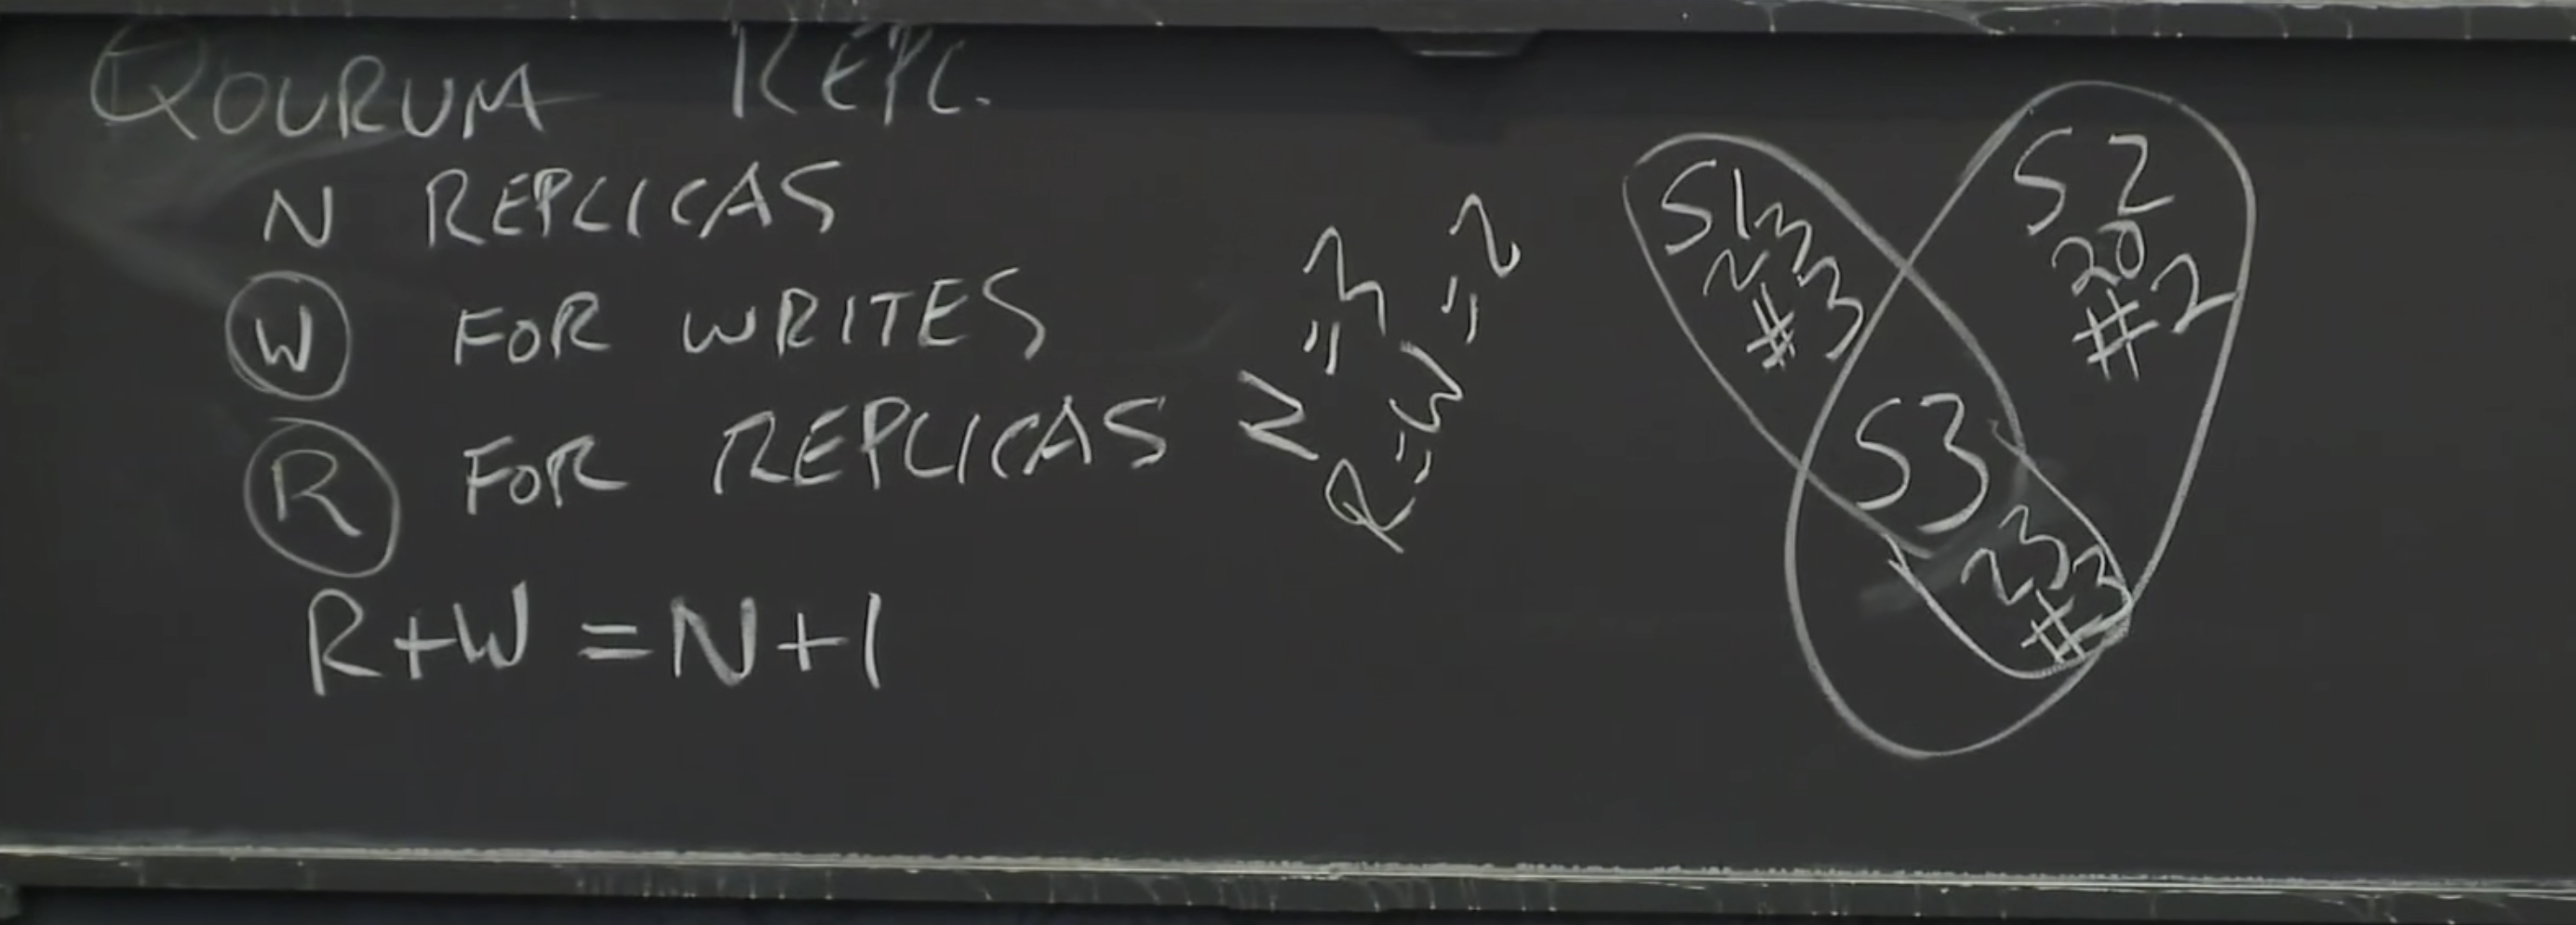 QOURUM REPL.
N REPLICAS
W FOR WRITES
R FOR REPLICAS
R+W=N+1
N=3
R=W=2
S1
23
#3
S2
20
#2
S3
23
#3